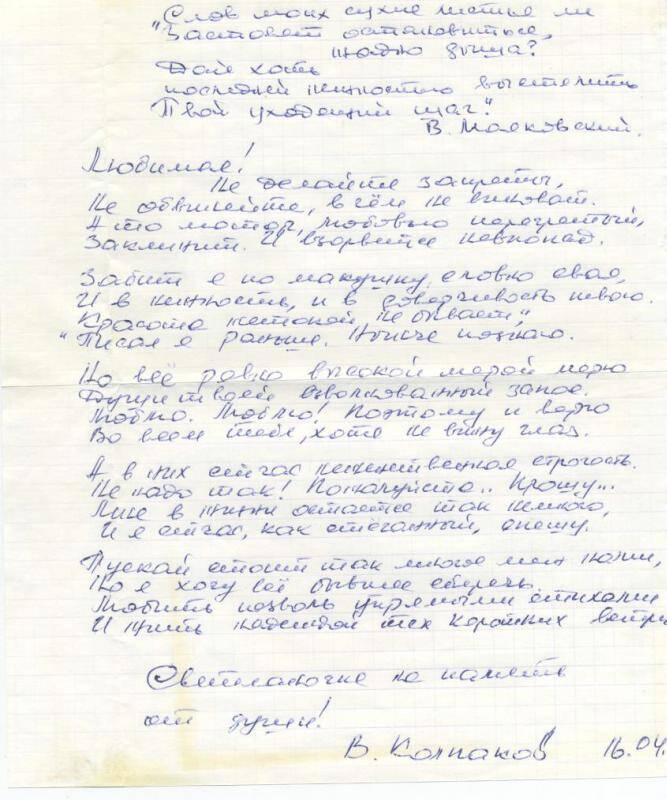 Слов моих сухие листья ли
"Заставят остановиться,
жадно дыша?
Дай хоть
последней нежностью выстелить
Твой уходящий шаг."
В. Маяковский.
Любимая!
Не делайте запреты,
Не обвиняйте, в чём не виноват.
А то мотор, любовью перегретый,
Заклинит. И взорвётся невпопад.
Забит я по макушку, словно свая,
И в нежность, и в доверчивость твою.
"Красота жестокой не бывает",
Писал я раньше. Нынче познаю.
Но всё равно высокой мерой мерю
Души твоей взволнованный запас.
Люблю. Люблю! Поэтому и верю
Во всём тебе, хотя не вижу глаз.
А в них сейчас неженственная строгость.
Не надо так! Пожалуйста.. Прошу...
Мне в жизни остаётся так немного,
И я сейчас, как стёганный, спешу.
Пускай стоит так много меж нами,
Но я хочу всё бывшее сберечь.
Любить позволь упрямыми стихами
И жить надеждой тех коротких встреч
Светланочке на память
от души!
В. Колпаков 16.04.